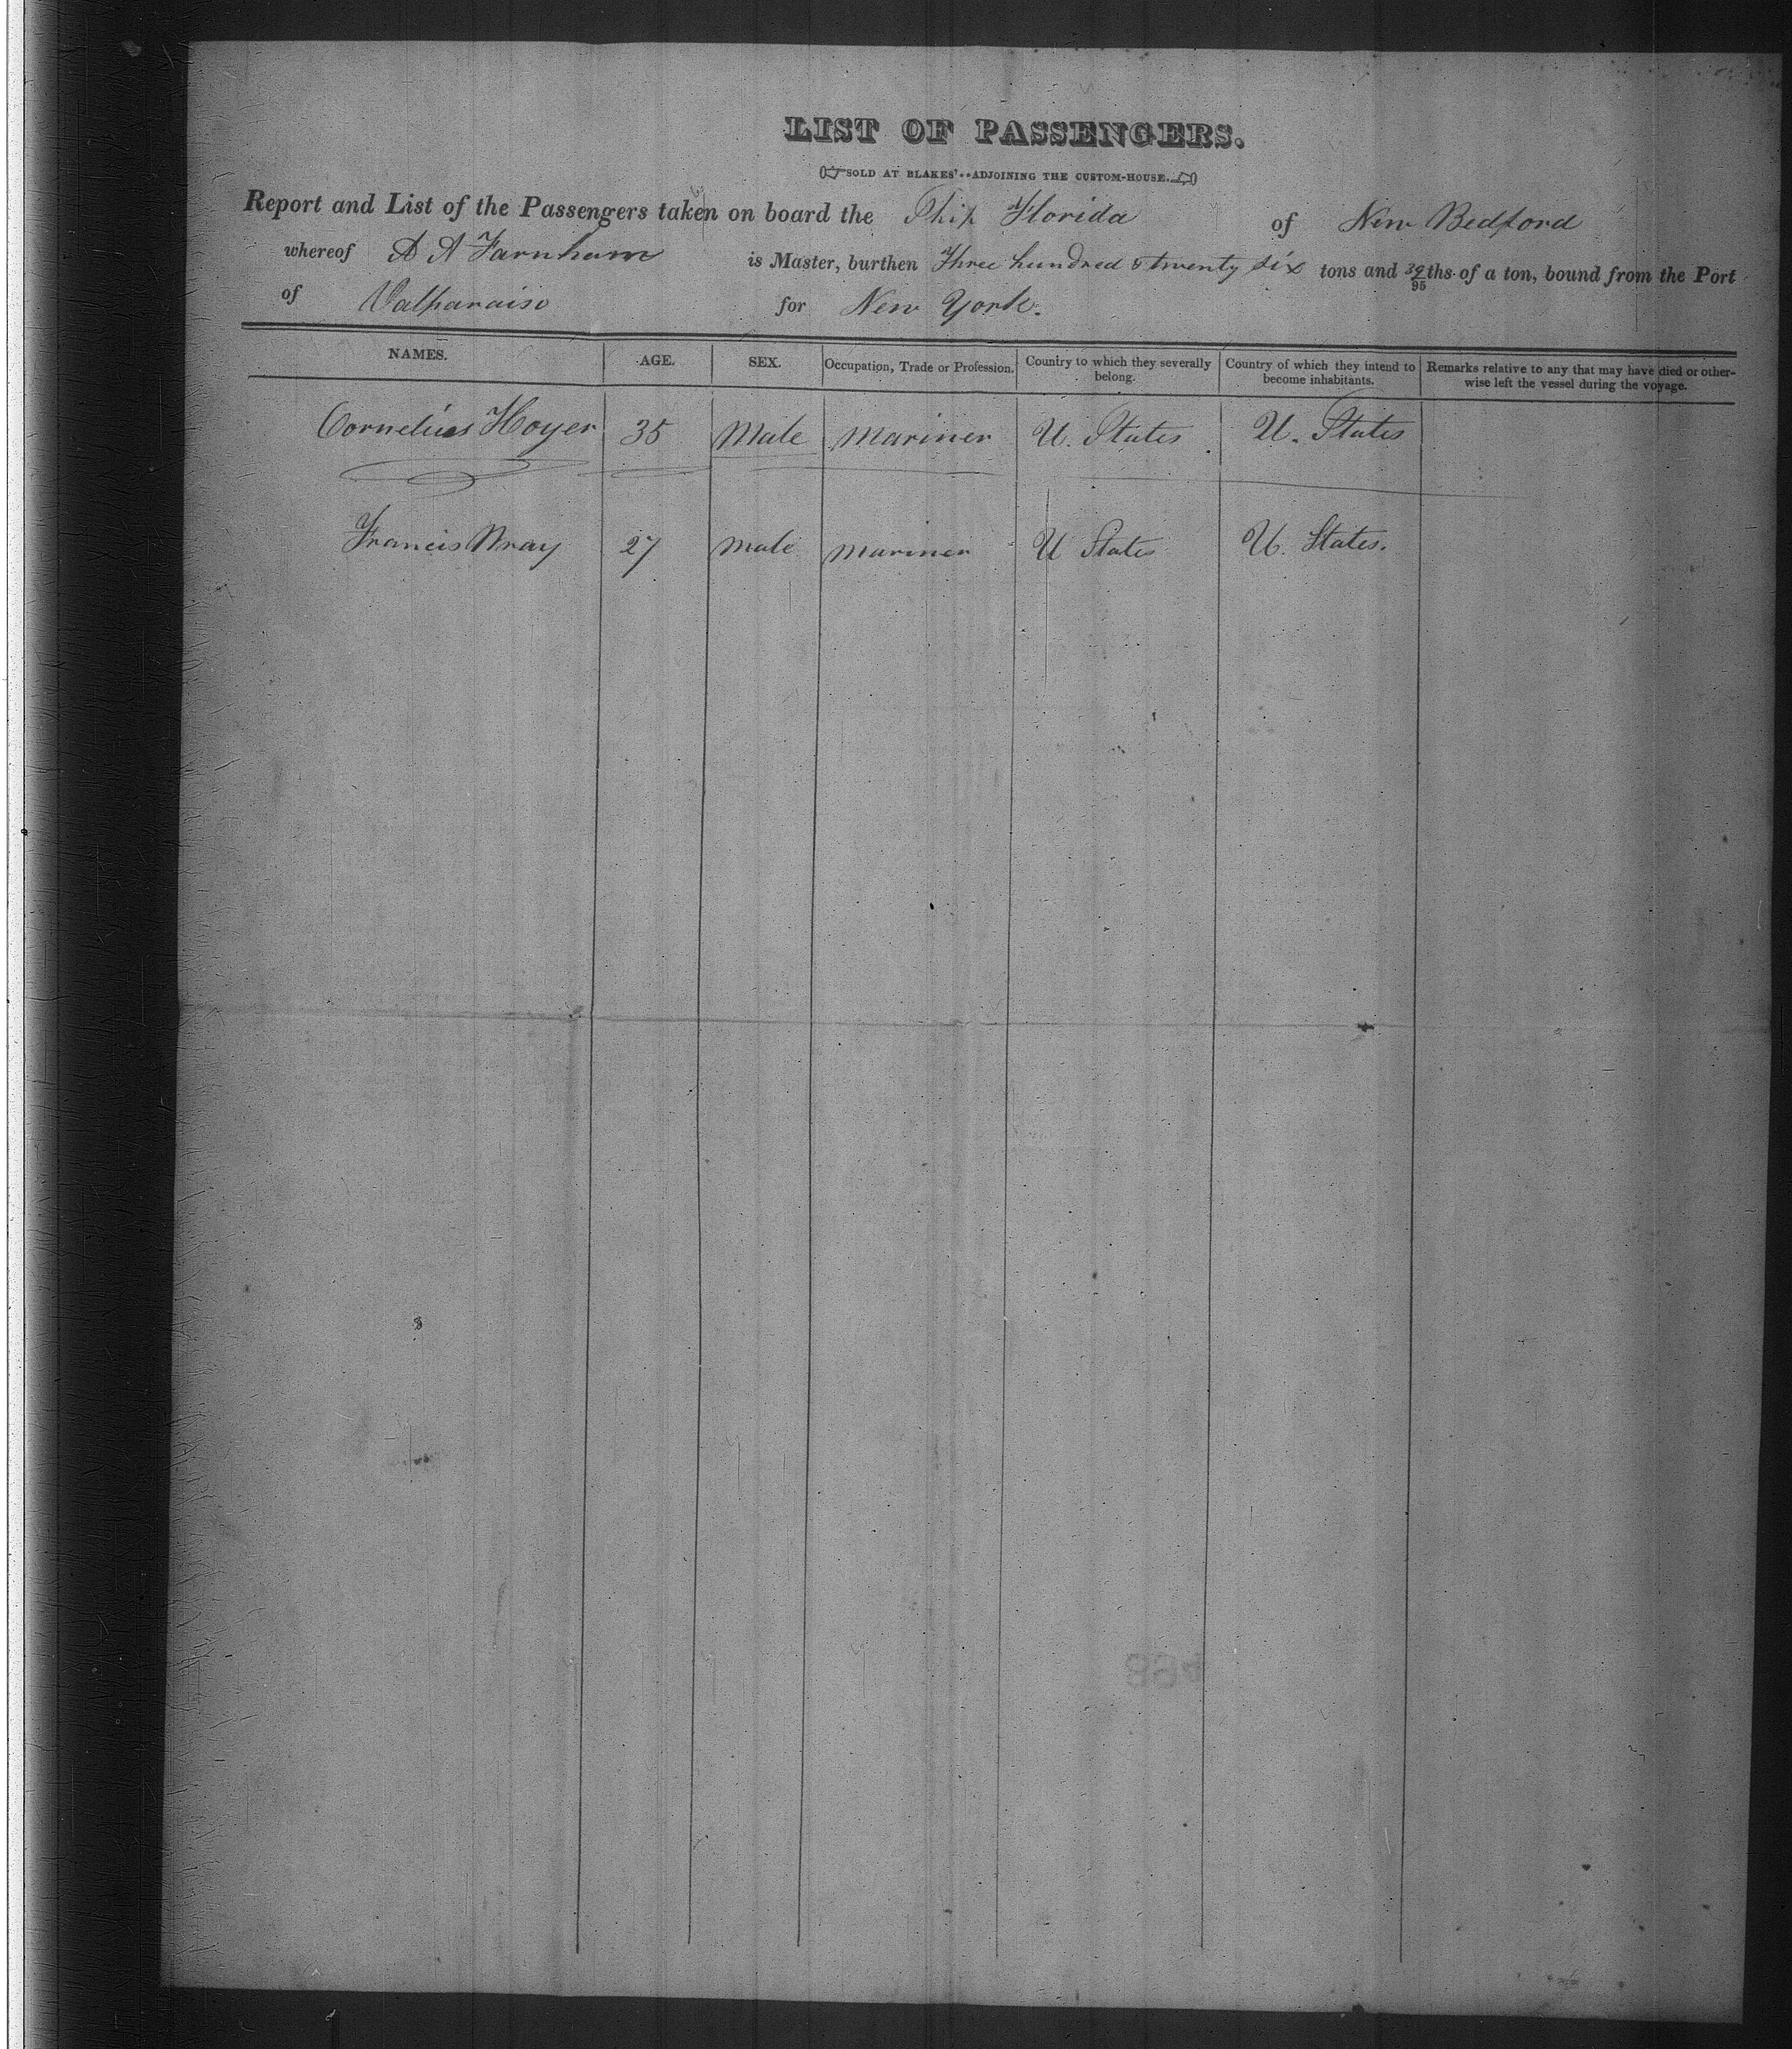 LIST OF PASSENGERS.
SOLD AT BLAKES'..ADJOINING THE CUSTOM-HOUSE.
Report and List of the Passengers taken on board the Ship Florida of New Bedford
whereof A A Farnham is Master, burthen Three hundred & twenty six tons and 39/95ths of a ton, bound from the Port
of Valparaiso for New York.
NAMES. AGE. SEX. Occupation, Trade or Profession. Country to which they severally belong. Country of which they intend to become inhabitants. Remarks relative to any that may have died or otherwise left the vessel during the voyage.
Cornelius Hoyer 35 Male Mariner U. States U. States
Francis Wray 27 Male Mariner U States U. States.